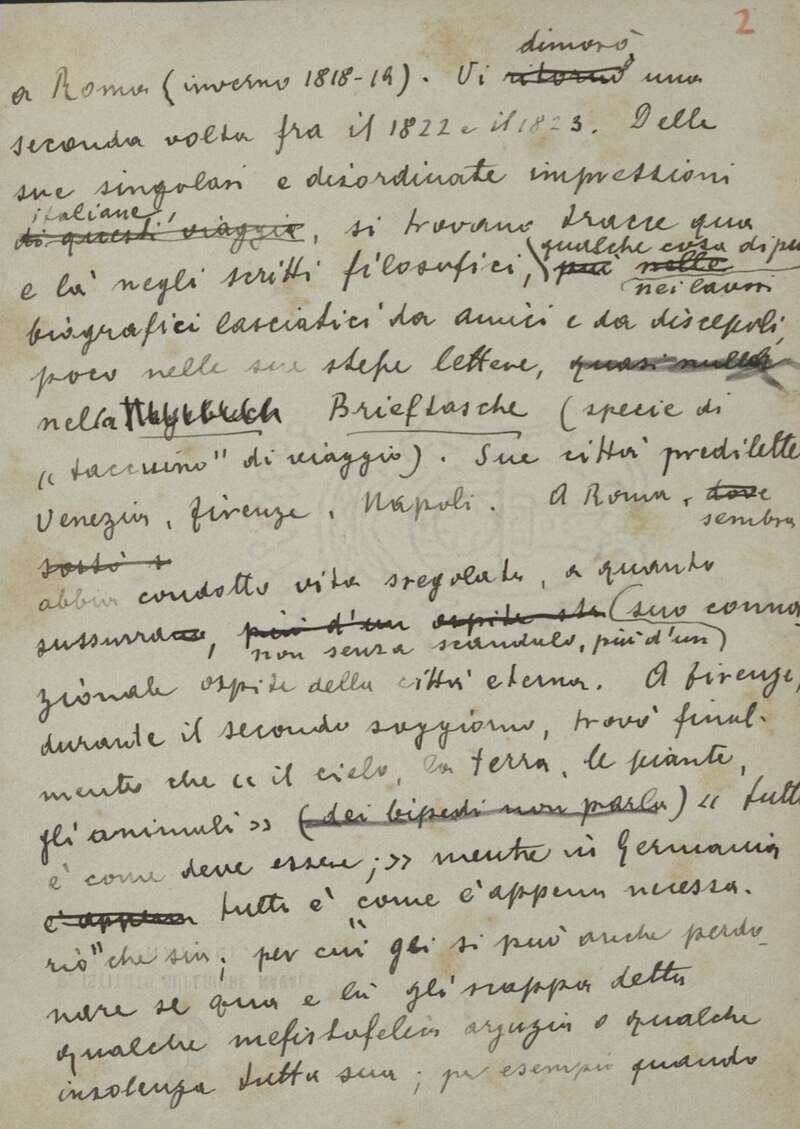 2
dimorò
a Roma (inverno 1818-19). Vi ritornò una
seconda volta fra il 1822 e il 1823. Delle
sue singolari e disordinate impressioni
italiane,
di questi viaggi, si trovano tracce qua
qualche cosa di più
e là negli scritti filosofici, più nelle
nei lavori
biografici lasciatici da amici e da discepoli,
poco nelle sue stesse lettere, quasi nulla
nella Brieftasche (specie di
« taccuino" di viaggio). Sue città predilette
Venezia, Firenze, Napoli. A Roma, dove
sembra
sostò s
abbia condotto vita sregolata, a quanto
sussurrano, più d'un ospite ste (suo conna-
non senza scandalo, più d'un)
zionale ospite della città eterna. A Firenze,
durante il secondo soggiorno, trovò final-
mente che « il cielo, la terra, le piante,
gli animali » (dei bipedi non parla) « tutto
è come deve essere; » mentre in Germania
è appena tutto è come è appena necessa-
rio" che sia; per cui gli si può anche perdo-
nare se qua e là gli scappa detta
qualche mefistofelica arguzia o qualche
insolenza tutta sua; per esempio quando